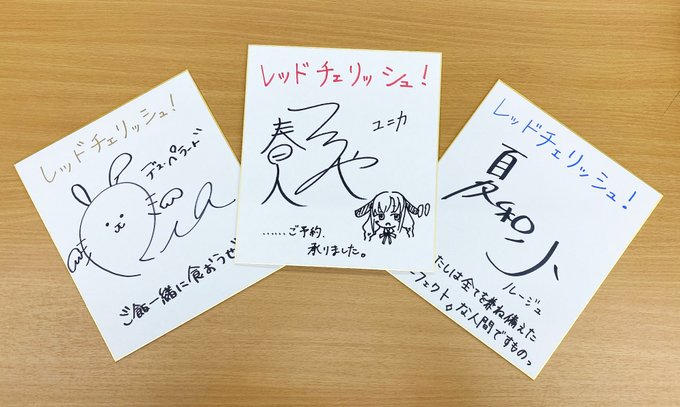 レッドチェリッシュ!
デュ・ペラード
ご飯一緒に食おうぜ
レッドチェリッシュ!
ユニカ
春人
……ご予約、
承りました。
レッドチェリッシュ!
夏和小
ルージュ
たしは全てを兼ね備えた
ーフェクト。な人間ですものっ